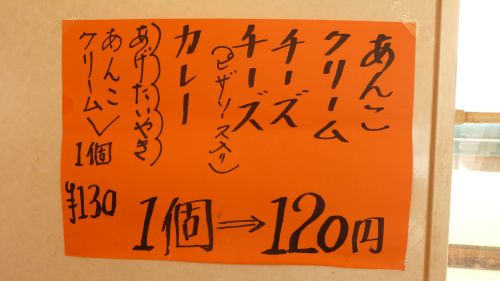 あんこ
クリーム
チーズ
チーズ
(ピザソース入り)
カレー
あげたいやき
あんこ
クリーム
1個
¥130
1個⇒120円